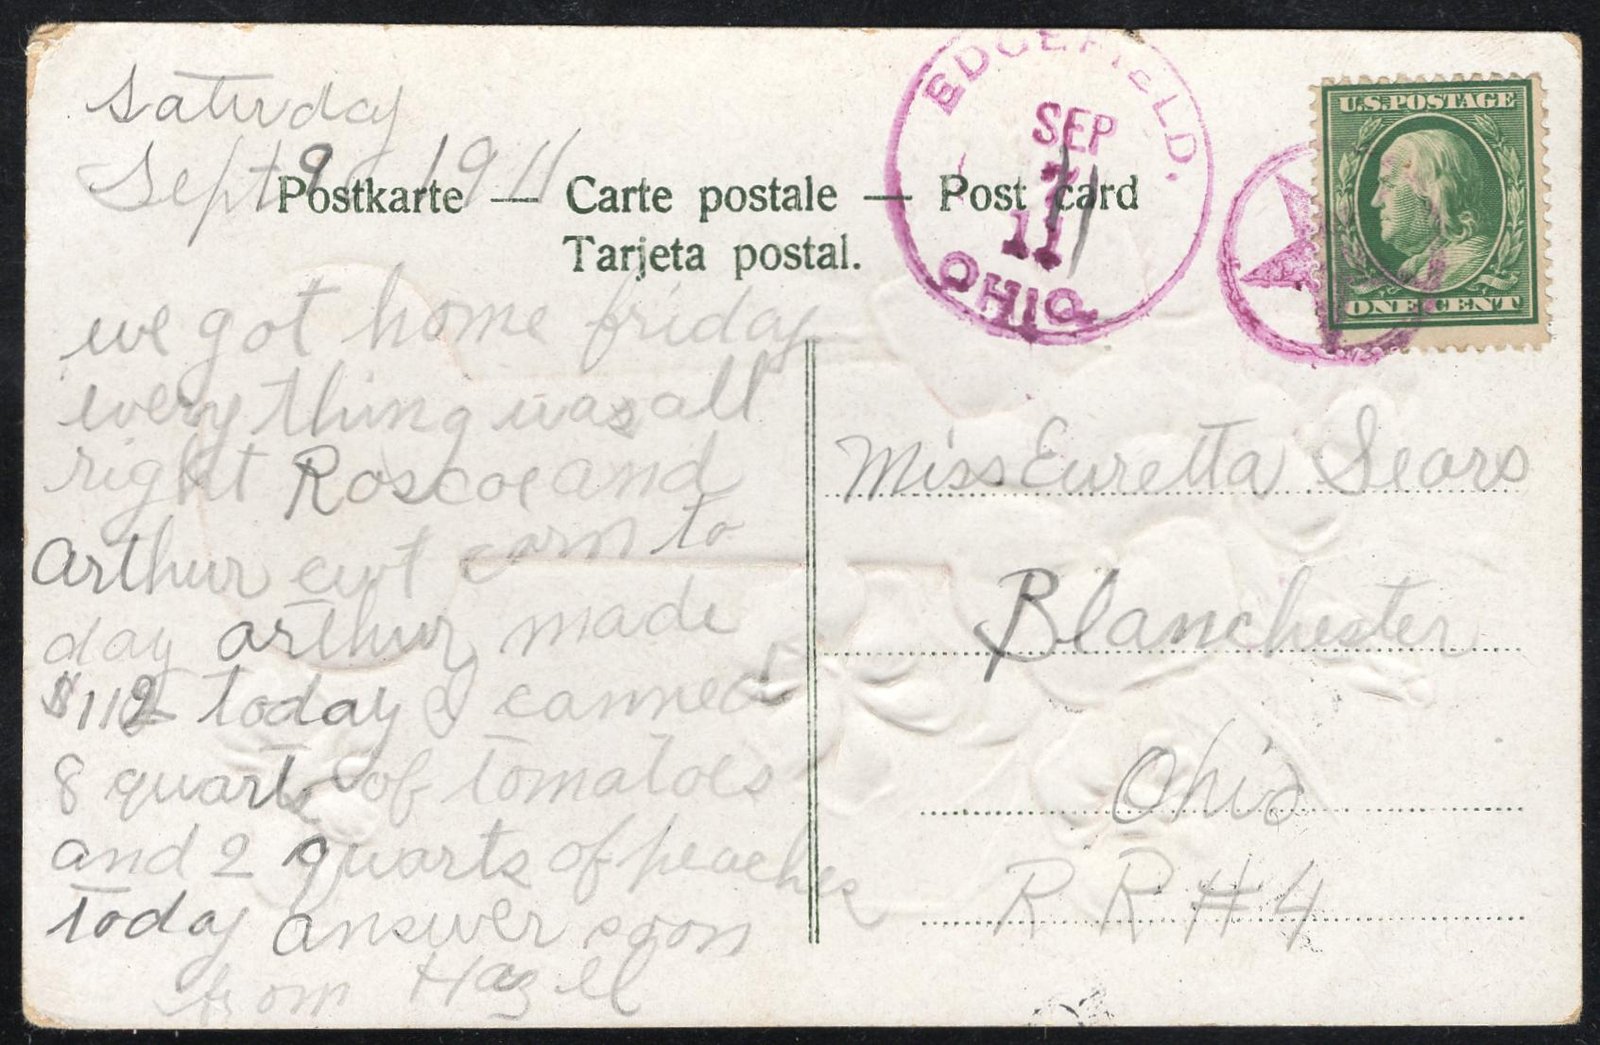 Saturday
Sept 9 1911
Postkarte — Carte postale — Post card
Tarjeta postal.
we got home friday
every thing was all
right Roscoe and
Arthur cut corn to
day arthur made
$112 today I canned
8 quarts of tomatoes
and 2 quarts of peaches
today answer soon
from Hazell
EDGEFIELD,
SEP
11
OHIO.
U.S. POSTAGE
ONE CENT
Miss Euretta Sears
Blanchester
Ohio
R R # 4